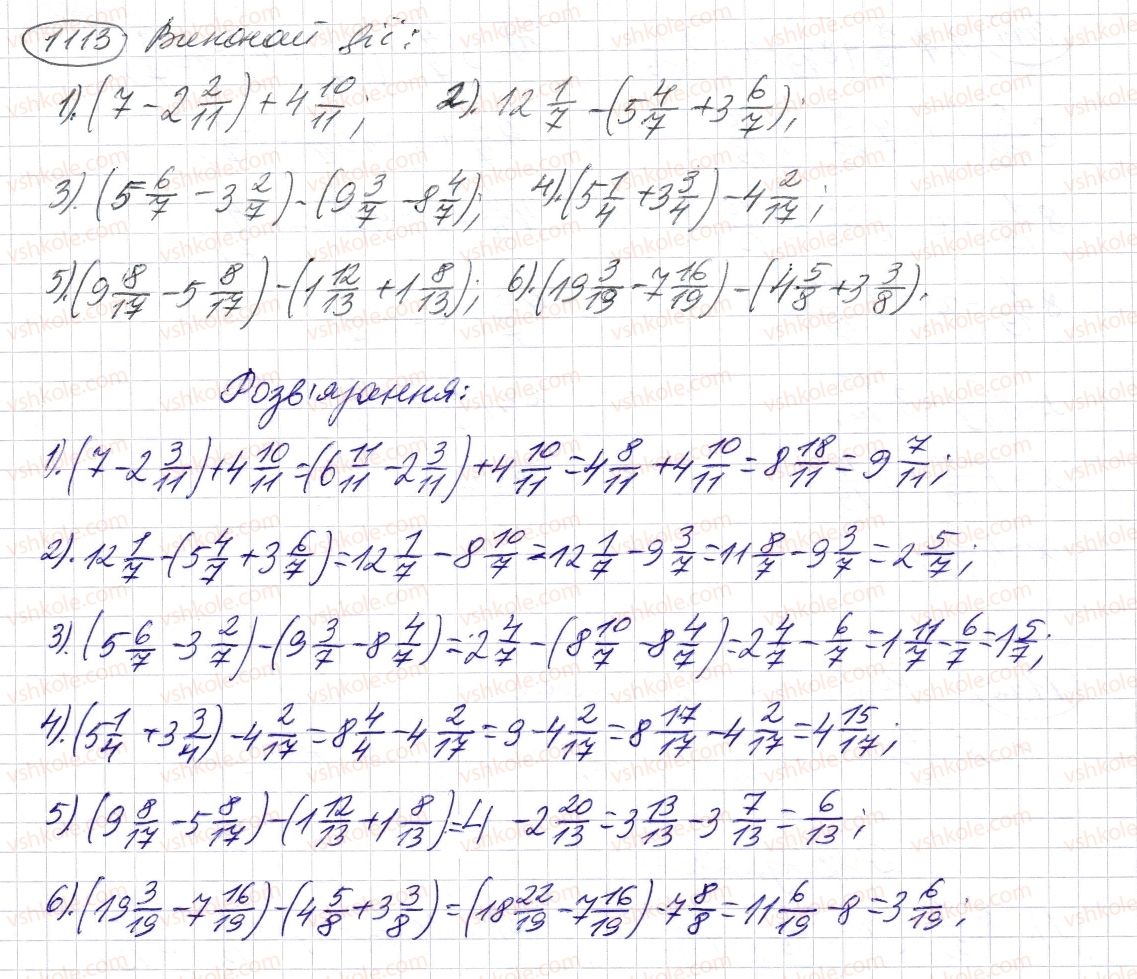 1113 Виконай дії:
1). (7 - 2 2/11) + 4 10/11; 2). 12 1/7 - (5 4/7 + 3 6/7);
3). (5 6/7 - 3 2/7) - (9 3/7 - 8 4/7); 4). (5 1/4 + 3 3/4) - 4 2/17;
5). (9 8/17 - 5 8/17) - (1 12/13 + 1 8/13); 6). (19 3/19 - 7 16/19) - (4 5/8 + 3 3/8).
Розв'язання:
1). (7 - 2 3/11) + 4 10/11 = (6 11/11 - 2 3/11) + 4 10/11 = 4 8/11 + 4 10/11 = 8 18/11 = 9 7/11;
2). 12 1/7 - (5 4/7 + 3 6/7) = 12 1/7 - 8 10/7 = 12 1/7 - 9 3/7 = 11 8/7 - 9 3/7 = 2 5/7;
3). (5 6/7 - 3 2/7) - (9 3/7 - 8 4/7) = 2 4/7 - (8 10/7 - 8 4/7) = 2 4/7 - 6/7 = 1 11/7 - 6/7 = 1 5/7;
4). (5 1/4 + 3 3/4) - 4 2/17 = 8 4/4 - 4 2/17 = 9 - 4 2/17 = 8 17/17 - 4 2/17 = 4 15/17;
5) (9 8/17 - 5 8/17) - (1 12/13 + 1 8/13) = 4 - 2 20/13 = 3 13/13 - 3 7/13 = 6/13;
6). (19 3/19 - 7 16/19) - (4 5/8 + 3 3/8) = (18 22/19 - 7 16/19) - 7 8/8 = 11 6/19 - 8 = 3 6/19;